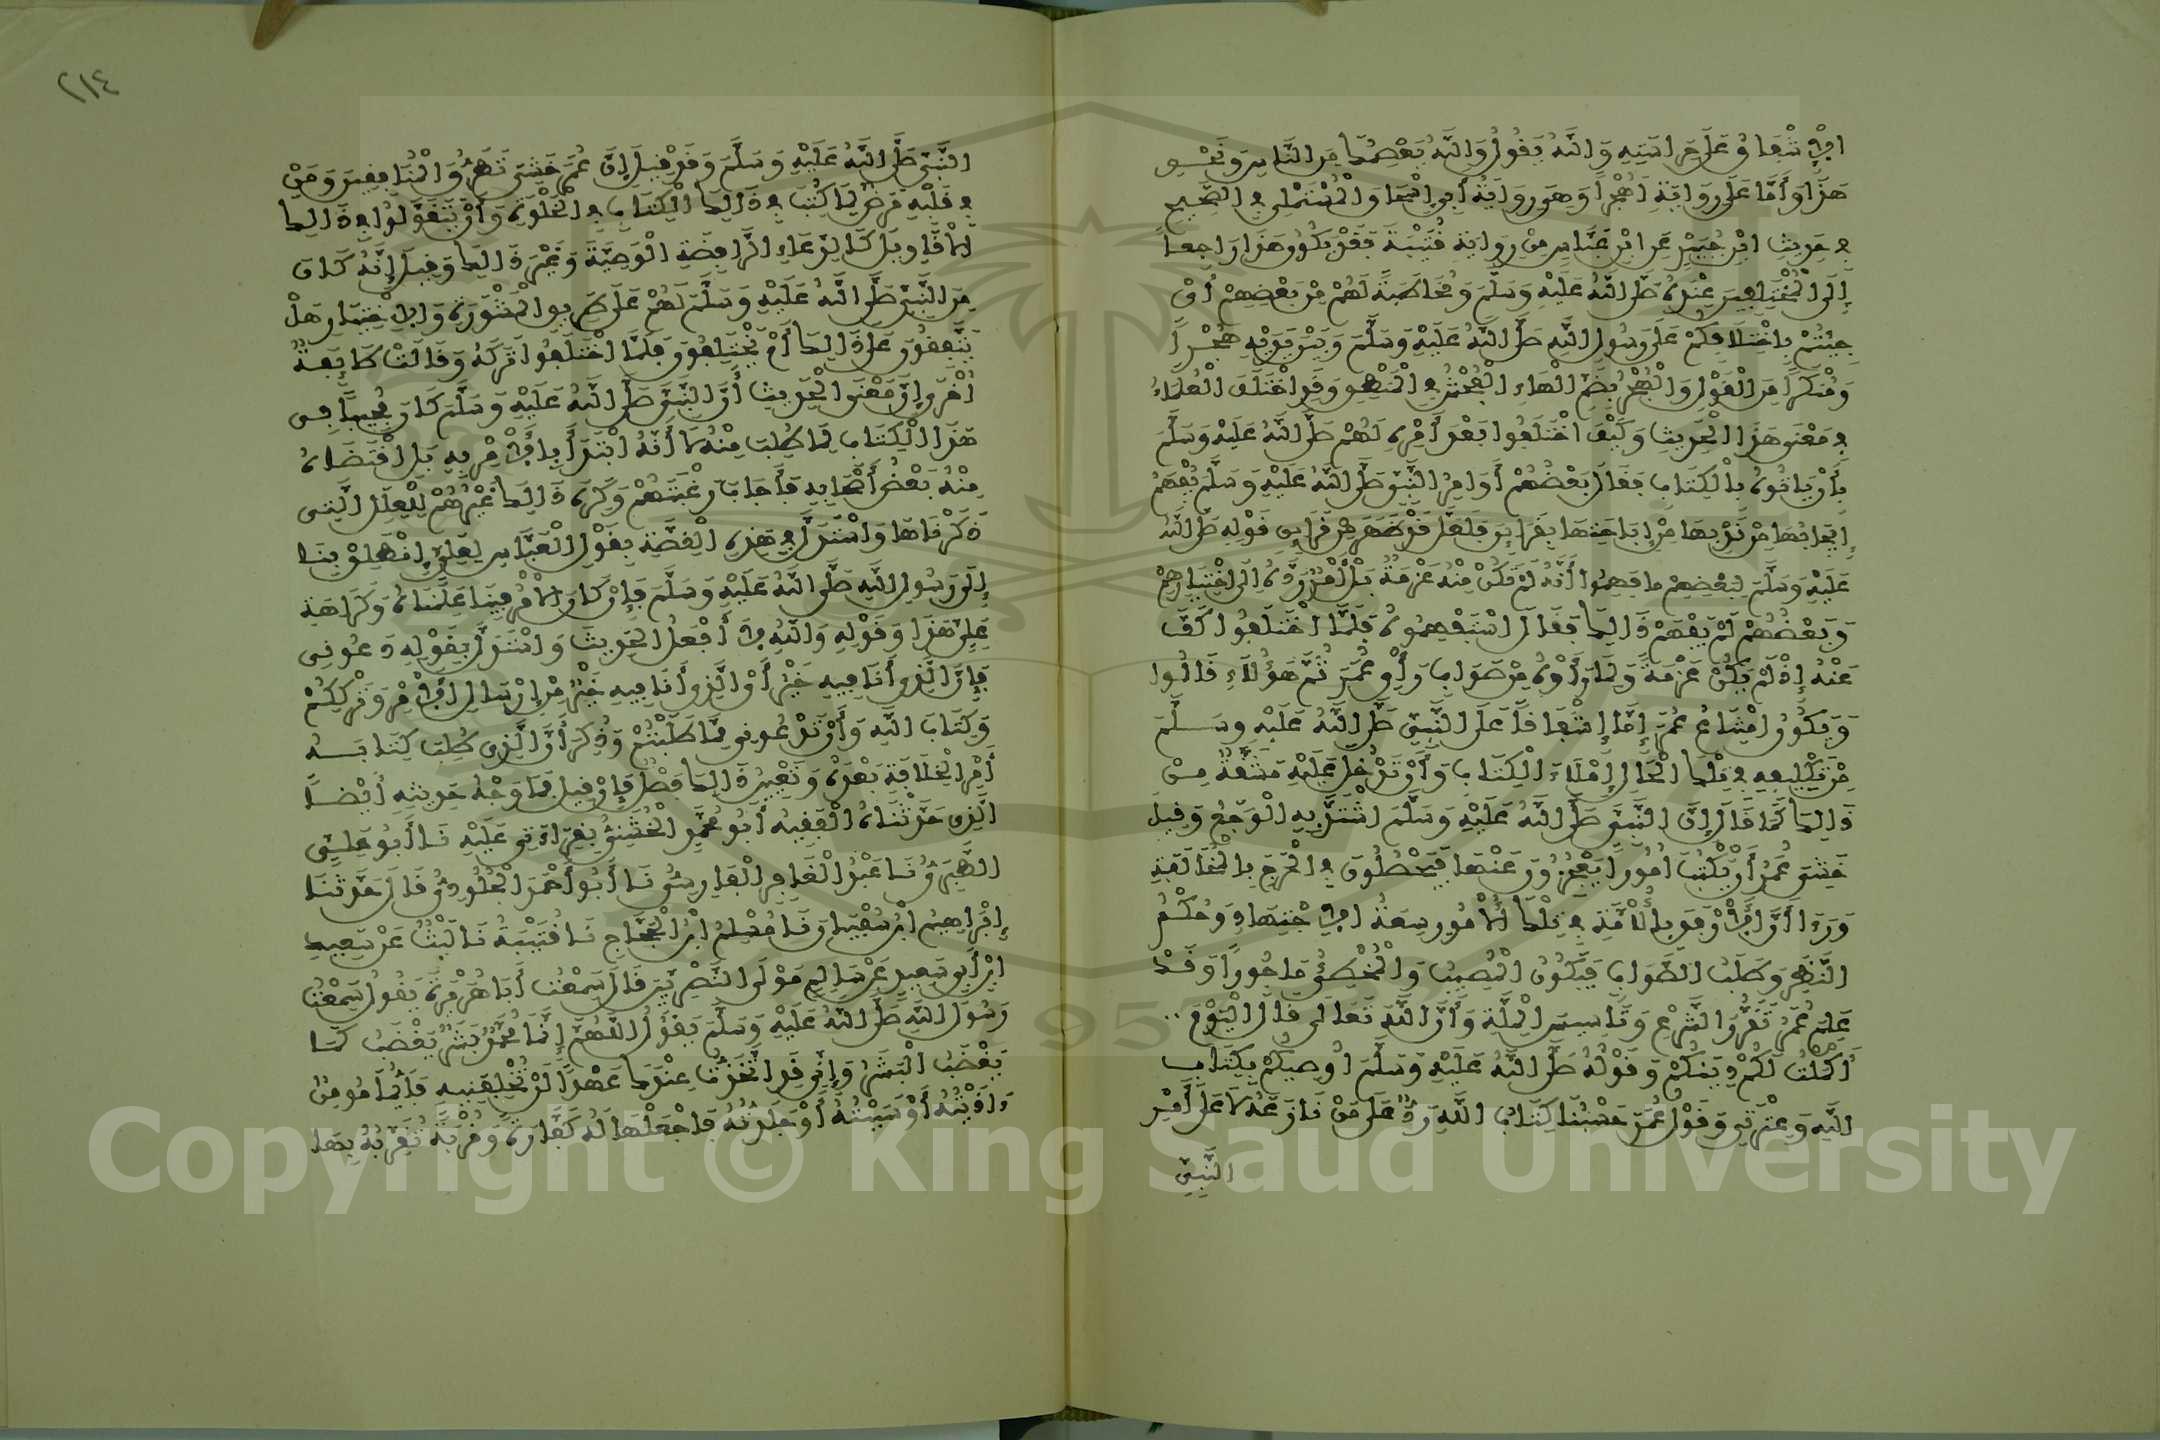 الاشفاق على حراسته والله يقول والله يعصمك من الناس ونحو
هذا وأما على رواية أهجرا وهي رواية أبي إسحاق والمستملي في الصحيح
في حديث ابن جبير عن ابن عباس من رواية قتيبة فقد يكون هذا راجعا
إلى المختلفين عنده صلى الله عليه وسلم ومخاطبة لهم من بعضهم أي
جيتم باختلافكم على رسول الله صلى الله عليه وسلم وبين يديه هجرا
ومنكرا من القول والهجر بضم الهاء الفحش في المنطق وقد اختلف العلماء
في معنى هذا الحديث وكيف اختلفوا بعد أمره لهم صلى الله عليه وسلم
بأن ياتوه بالكتاب فقال بعضهم أوامر النبي صلى الله عليه وسلم يفهم
إيجابها من ندبها من إباحتها بقراين فلعل قد ظهر من قراين قوله صلى الله
عليه وسلم لبعضهم ما فهموا أنه لم تكن منه عزمة بل أمر رده إلى اختيارهم
وبعضهم لم يفهم ذالك فقال استفهموه فلما اختلفوا كف
عنه إذ لم يكن عزمة ولما رأوه من صواب رأي عمر ثم هؤلاء قالوا
ويكون امتناع عمر إما إشفاقا على النبي صلى الله عليه وسلم
من تكليفه في تلك الحال إملاء الكتاب وأن تدخل عليه مشقة من
ذالك كما قال إن النبي صلى الله عليه وسلم اشتد به الوجع وقيل
خشي عمر أن يكتب امورا يعجزون عنها فيحصلون في الحرج بالمخالفة
ورءا أن الأرفق بالأمة في تلك الأمور سعة الاجتهاد وحكم
النظر وطلب الصواب فيكون المصيب والمخطئ ماجورا وقد
علم عمر تقرر الشرع وتاسيس الملة وأن الله تعالى قال اليوم
أكملت لكم دينكم وقوله صلى الله عليه وسلم أوصيكم بكتاب
الله وعترتي وقول عمر حسبنا كتاب الله رد على من نازعه لا على أمر
النبي
٢١٤
النبي صلى الله عليه وسلم وقد قيل إن عمر خشي تطرق المنافقين ومن
في قلبه مرض لما كتب في ذالك الكتاب في الخلوة وأن يتقولوا في ذالك
الأقاويل كادعاء الرافضة الوصية وغير ذالك وقيل إنه كان
من النبي صلى الله عليه وسلم لهم على طريق المشورة والاختبار هل
يتفقون على ذالك أم يختلفون فلما اختلفوا تركه وقالت طايفة
أخرى إن معنى الحديث أن النبي صلى الله عليه وسلم كان مجيبا في
هذا الكتاب لما طلب منه لا أنه ابتدأ بالأمر به بل اقتضاه
منه بعض أصحابه فأجاب رغبتهم وكره ذالك غيرهم للعلل التي
ذكرناها واستدل في هذه القصة بقول العباس لعلي إنطلق بنا
إلى رسول الله صلى الله عليه وسلم فإن كان الأمر فينا علمناه وكراهة
علي هذا وقوله والله لا أفعل الحديث واستدل بقوله دعوني
فإن الذي أنا فيه خير أي الذي أنا فيه خير من إرسال الأمر وترككم
وكتاب الله وأن تدعوني مما طلبتم وذكر أن الذي طلب كتابه
أمر الخلافة بعده وتعيين ذالك فصل فإن قيل فما وجه حديثه أيضا
الذي حدثناه الفقيه أبو محمد الخشني بقراءتي عليه نا أبو علي
الطبري نا عبد الغافر الفارسي نا أبو أحمد الجلودي قال حدثنا
إبراهيم ابن سفيان نا مسلم ابن الحجاج نا قتيبة نا ليث عن سعيد
ابن أبي سعيد عن سالم مولى النصريين قال سمعت أبا هريرة يقول سمعت
رسول الله صلى الله عليه وسلم يقول اللهم إنما محمد بشر يغضب كما
يغضب البشر وإني قد اتخذت عندك عهدا لن تخلفنيه فأيما مومن
ءاذيته أو سببته أو جلدته فاجعلها له كفارة وقربة تقربه بها
Copyright © King Saud University